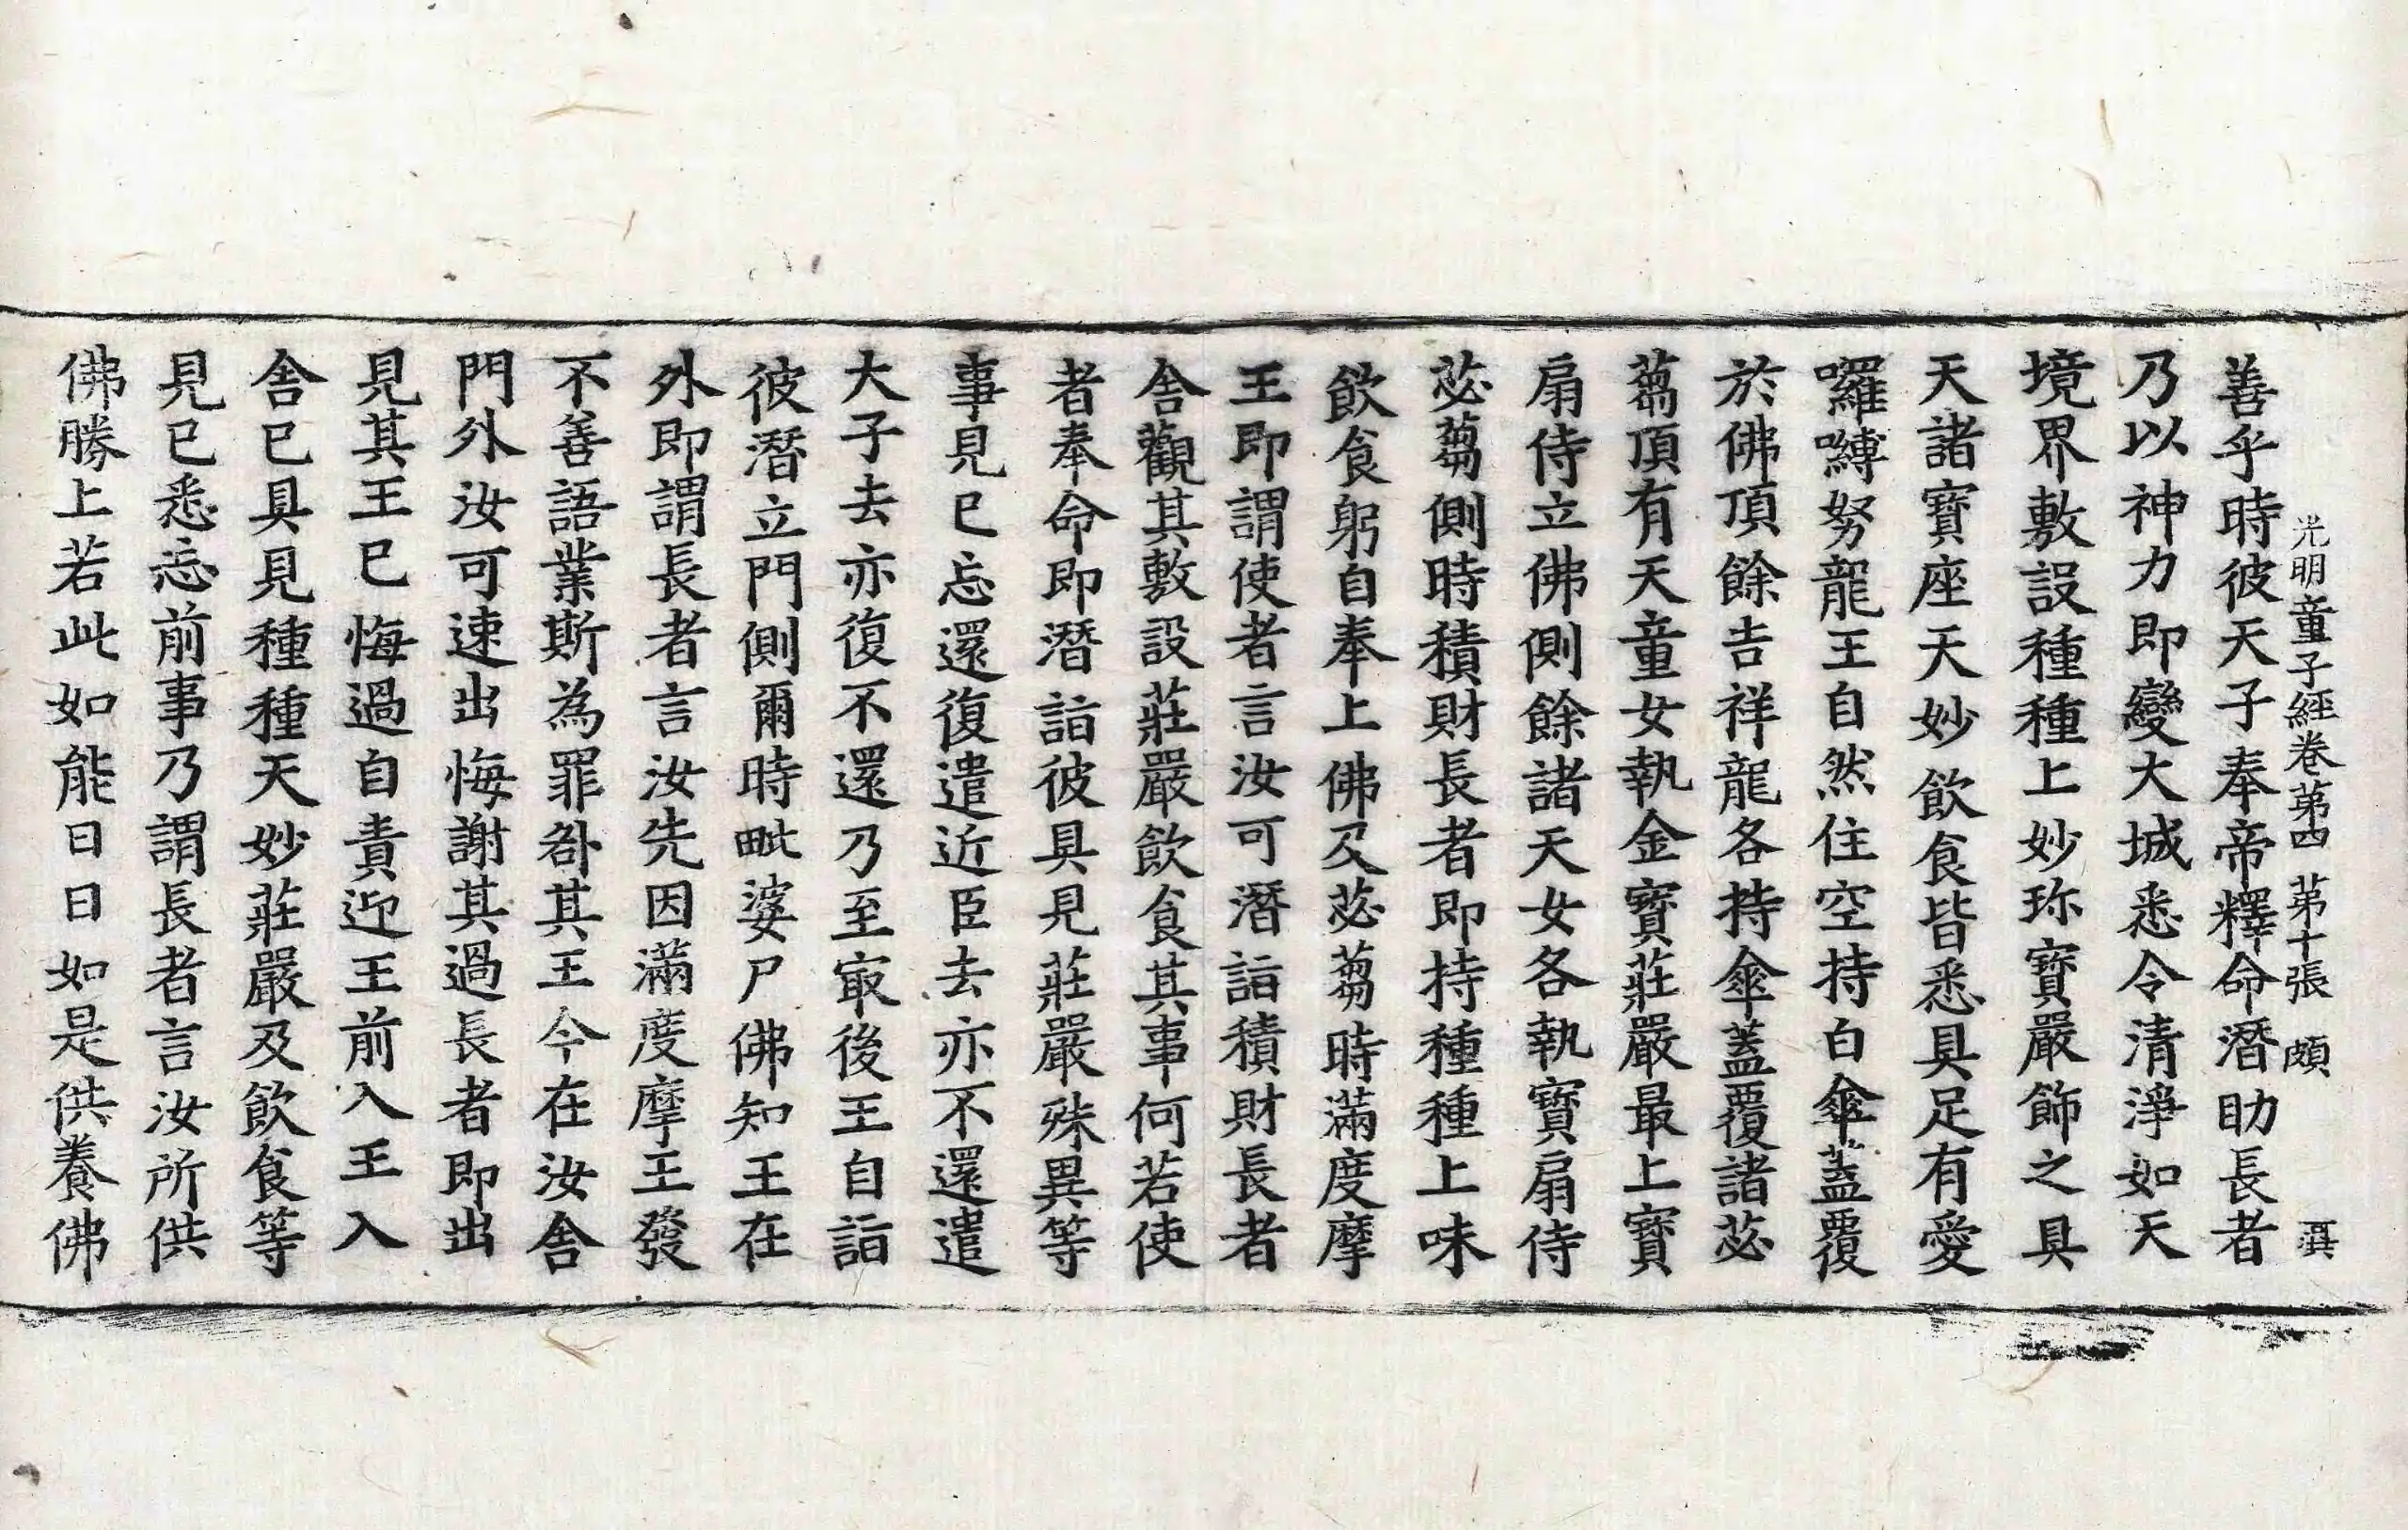 光明童子經卷第四 第十張 頗
善乎時彼天子奉帝釋命潛助長者
乃以神力即變大城悉令清淨如天
境界敷設種種上妙珎寶嚴飾之具
天諸寶座天妙飲食皆悉具足有愛
囉嚩努龍王自然住空持白傘蓋覆
於佛頂餘吉祥龍各持傘蓋覆諸苾
蒭頂有天童女執金寶莊嚴最上寶
扇侍立佛側餘諸天女各執寶扇侍
苾蒭側時積財長者即持種種上味
飲食躬自奉上佛及苾蒭時滿度摩
王即謂使者言汝可潛詣積財長者
舍觀其敷設莊嚴飲食其事何若使
者奉命即潛詣彼具見莊嚴殊異等
事見已忘還復遣近臣去亦不還遣
大子去亦復不還乃至㝡後王自詣
彼潛立門側爾時毗婆尸佛知王在
外即謂長者言汝先因滿度摩王發
不善語業斯為罪咎其王今在汝舍
門外汝可速出悔謝其過長者即出
見其王已悔過自責迎王前入王入
舍已具見種種天妙莊嚴及飲食等
見已悉忘前事乃謂長者言汝所供
佛勝上若此如能日日如是供養佛